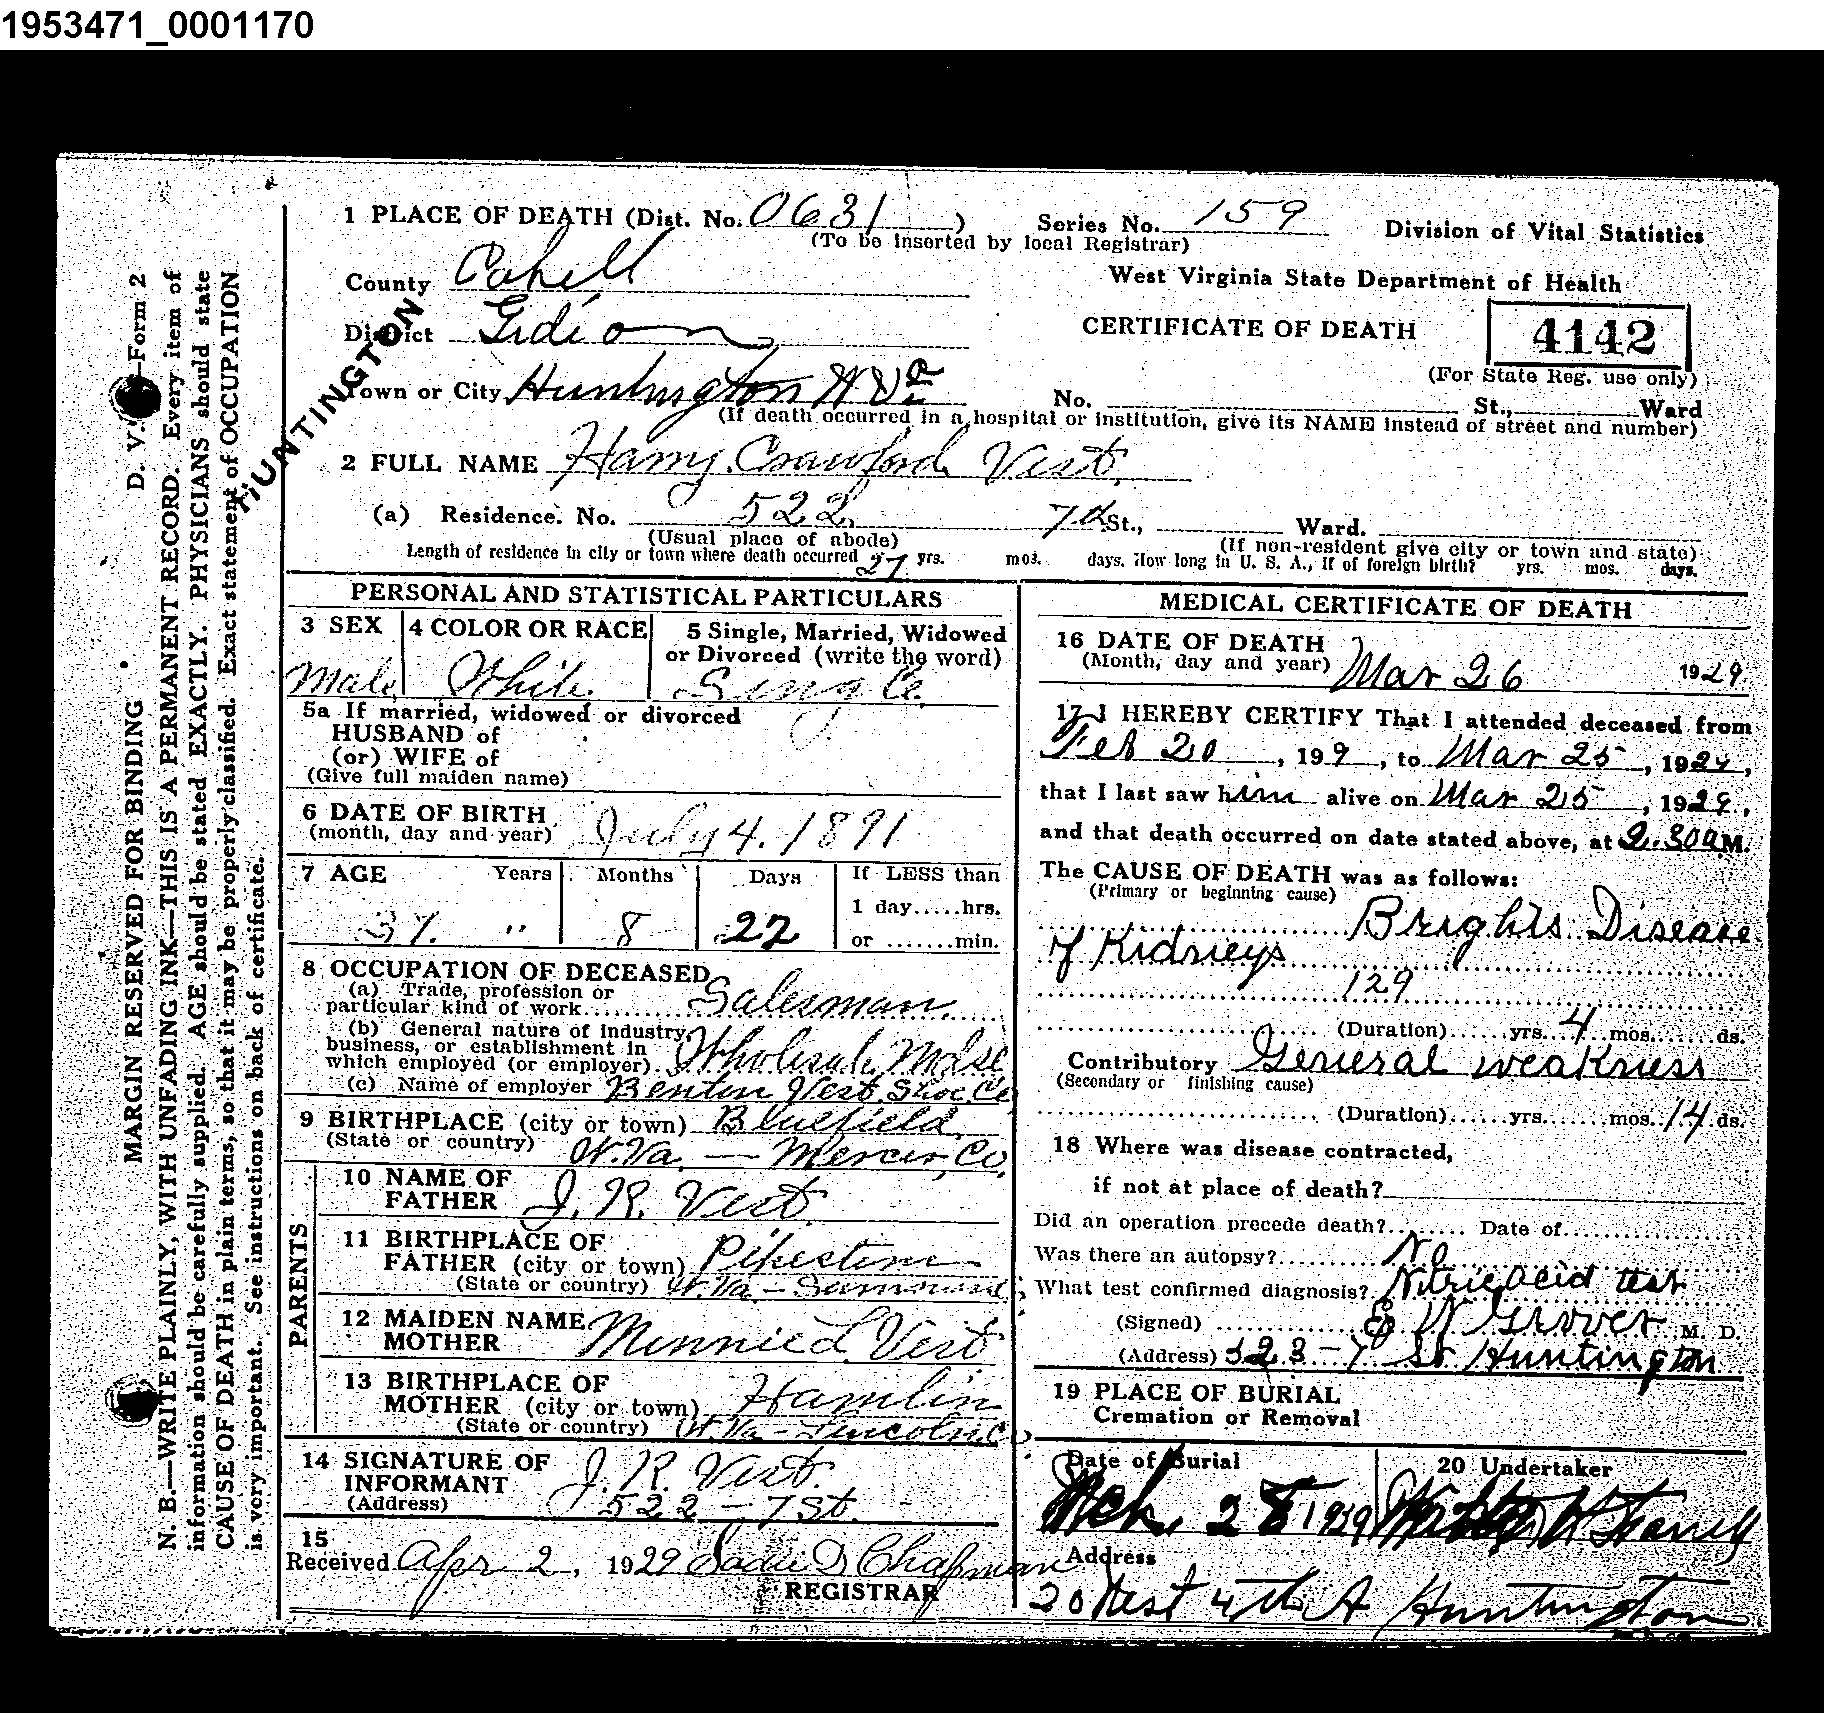 1953471_0001170
1 PLACE OF DEATH (Dist. No. 0631 )
(To be inserted by local Registrar)
Series No. 159
Division of Vital Statistics
County Cabell
West Virginia State Department of Health
District Gideon
CERTIFICATE OF DEATH
4142
(For State Reg. use only)
HUNTINGTON
Town or City Huntington W Va
No. St., Ward
(If death occurred in a hospital or institution, give its NAME instead of street and number)
2 FULL NAME Harry Crawford Vest
(a) Residence. No. 522 7th St., Ward.
(Usual place of abode)
(If non-resident give city or town and state)
Length of residence in city or town where death occurred 27 yrs. mos. days. How long in U. S. A., if of foreign birth? yrs. mos. days.
PERSONAL AND STATISTICAL PARTICULARS
3 SEX
Male
4 COLOR OR RACE
White
5 Single, Married, Widowed
or Divorced (write the word)
Single
5a If married, widowed or divorced
HUSBAND of
(or) WIFE of
(Give full maiden name)
6 DATE OF BIRTH
(month, day and year) July 4. 1891
7 AGE Years Months Days If LESS than
1 day.....hrs.
37 " 8 22 or .......min.
8 OCCUPATION OF DECEASED
(a) Trade, profession or
particular kind of work Salesman
(b) General nature of industry,
business, or establishment in
which employed (or employer) Wholesale Mdse
(c) Name of employer Benton Vest Shoe Co
9 BIRTHPLACE (city or town) Bluefield
(State or country) W. Va. — Mercer Co.
PARENTS
10 NAME OF
FATHER J. R. Vest
11 BIRTHPLACE OF
FATHER (city or town) Pipestem
(State or country) W. Va. -
12 MAIDEN NAME
MOTHER Minnie L. Vest
13 BIRTHPLACE OF
MOTHER (city or town) Hamlin
(State or country) W. Va - Lincoln Co
14 SIGNATURE OF
INFORMANT J. R. Vest
(Address) 522 - 7 St.
15
Received Apr 2, 1929 Sadie D Chapman
REGISTRAR
MEDICAL CERTIFICATE OF DEATH
16 DATE OF DEATH
(Month, day and year) Mar 26 1929
17 I HEREBY CERTIFY That I attended deceased from
Feb 20, 199, to Mar 25, 1929,
that I last saw him alive on Mar 25, 1929,
and that death occurred on date stated above, at 2.30a M.
The CAUSE OF DEATH was as follows:
(Primary or beginning cause)
Brights Disease
of Kidneys
129
(Duration)......yrs. 4 mos.......ds.
Contributory General weakness
(Secondary or finishing cause)
(Duration)......yrs.......mos. 14 ds.
18 Where was disease contracted,
if not at place of death?
Did an operation precede death?........ Date of
Was there an autopsy? No
What test confirmed diagnosis? Nitric acid test
(Signed) E W Grover M. D.
(Address) 523 - 7 St Huntington
19 PLACE OF BURIAL
Cremation or Removal
Date of Burial
Mch. 28 1929
20 Undertaker
Address
20 West 4th A Huntington
D. V. S.—Form 2
MARGIN RESERVED FOR BINDING
N. B.—WRITE PLAINLY, WITH UNFADING INK—THIS IS A PERMANENT RECORD. Every item of
information should be carefully supplied. AGE should be stated EXACTLY. PHYSICIANS should state
CAUSE OF DEATH in plain terms, so that it may be properly classified. Exact statement of OCCUPATION
is very important. See instructions on back of certificate.